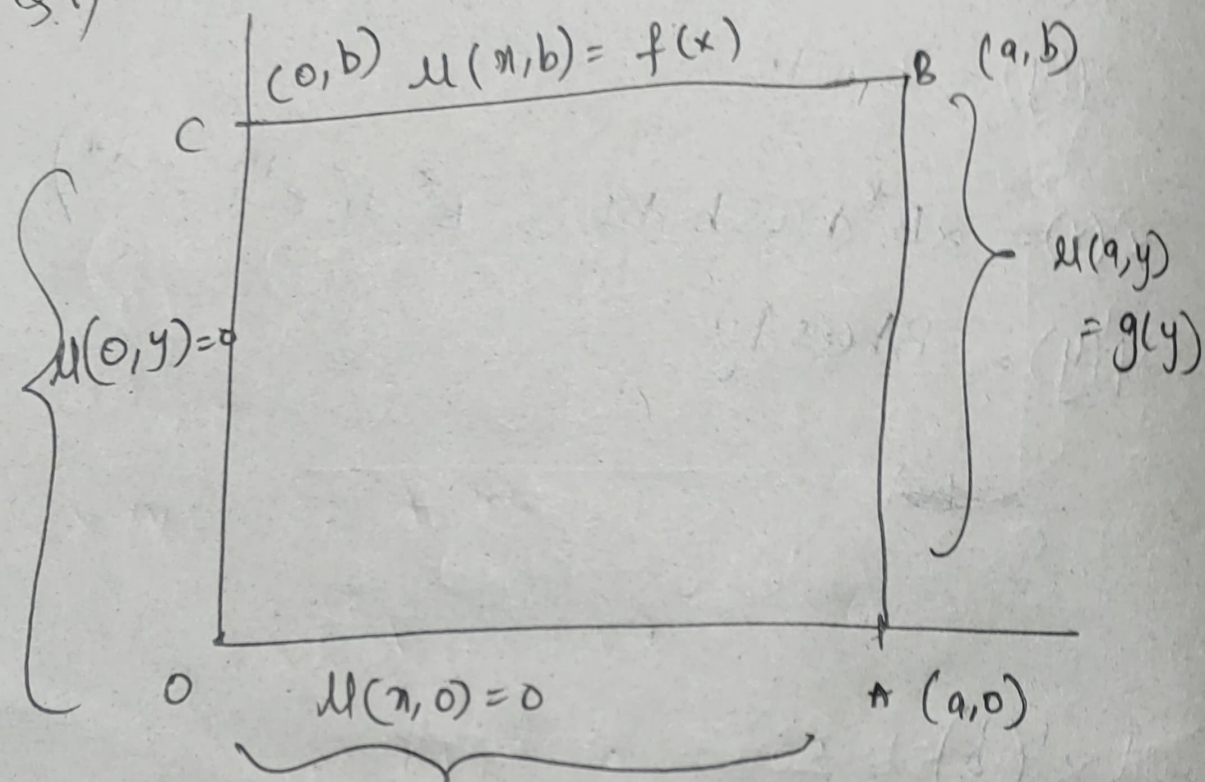 (0,b) u(x,b) = f(x) B (a,b)
C
u(0,y)=0
u(a,y)
= g(y)
O u(x,0) = 0 A (a,0)